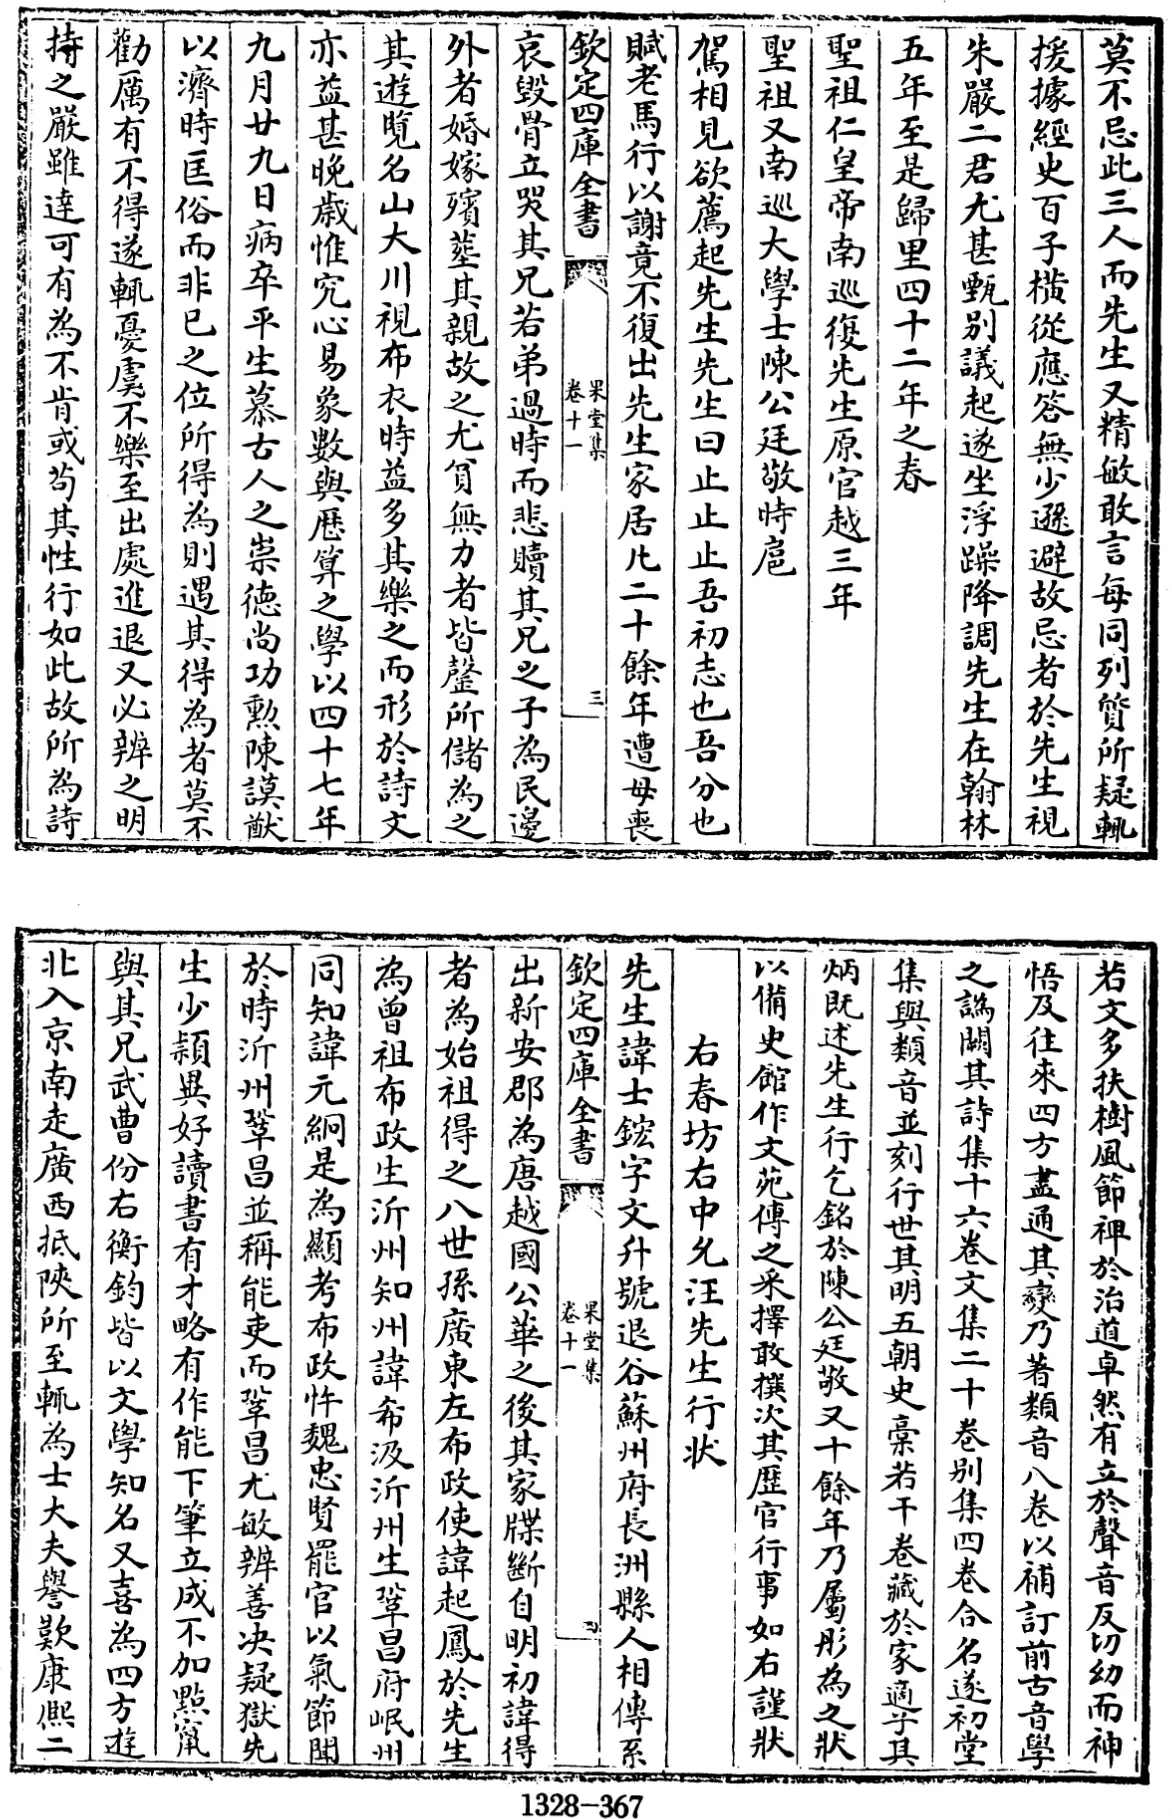 莫不忌此三人而先生又精敏敢言每同列質所疑輒
援據經史百子橫從應答無少遜避故忌者於先生視
朱嚴二君尤甚甄別議起遂坐浮躁降調先生在翰林
五年至是歸里四十二年之春
聖祖仁皇帝南巡復先生原官越三年
聖祖又南巡大學士陳公廷敬時扈
駕相見欲薦起先生先生曰止止止吾初志也吾分也
賦老馬行以謝竟不復出先生家居凡二十餘年遭母喪
欽定四庫全書
果堂集
卷十一
三
哀毀骨立哭其兄若弟過時而悲贖其兄之子為民邊
外者婚嫁殯塟其親故之尤貧無力者皆罄所儲為之
其遊覽名山大川視布衣時益多其樂之而形於詩文
亦益甚晚歲惟究心易象數與歷算之學以四十七年
九月廿九日病卒平生慕古人之崇德尚功勲陳謨猷
以濟時匡俗而非己之位所得為則遇其得為者莫不
勸厲有不得遂輒憂虞不樂至出處進退又必辨之明
持之嚴雖達可有為不肯或苟其性行如此故所為詩
若文多扶樹風節裨於治道卓然有立於聲音反切幼而神
悟及往來四方盡通其變乃著類音八卷以補訂前古音學
之譌闕其詩集十六卷文集二十卷别集四卷合名遂初堂
集與類音並刻行世其明五朝史稾若干卷藏於家適子其
炳既述先生行乞銘於陳公廷敬又十餘年乃屬彤為之狀
以備史館作文苑傳之采擇敢撰次其歷官行事如右謹狀
右春坊右中允汪先生行狀
先生諱士鋐字文升號退谷蘇州府長洲縣人相傳系
欽定四庫全書
果堂集
卷十一
四
出新安郡為唐越國公華之後其家牒斷自明初諱得
者為始祖得之八世孫廣東左布政使諱起鳳於先生
為曾祖布政生沂州知州諱希汲沂州生鞏昌府岷州
同知諱元絅是為顯考布政忤魏忠賢罷官以氣節聞
於時沂州鞏昌並稱能吏而鞏昌尤敏辨善决疑獄先
生少穎異好讀書有才略有作能下筆立成不加點竄
與其兄武曹份右衡鈞皆以文學知名又喜為四方遊
北入京南走廣西抵陜所至輒為士大夫譽歎康熙二
1328-367